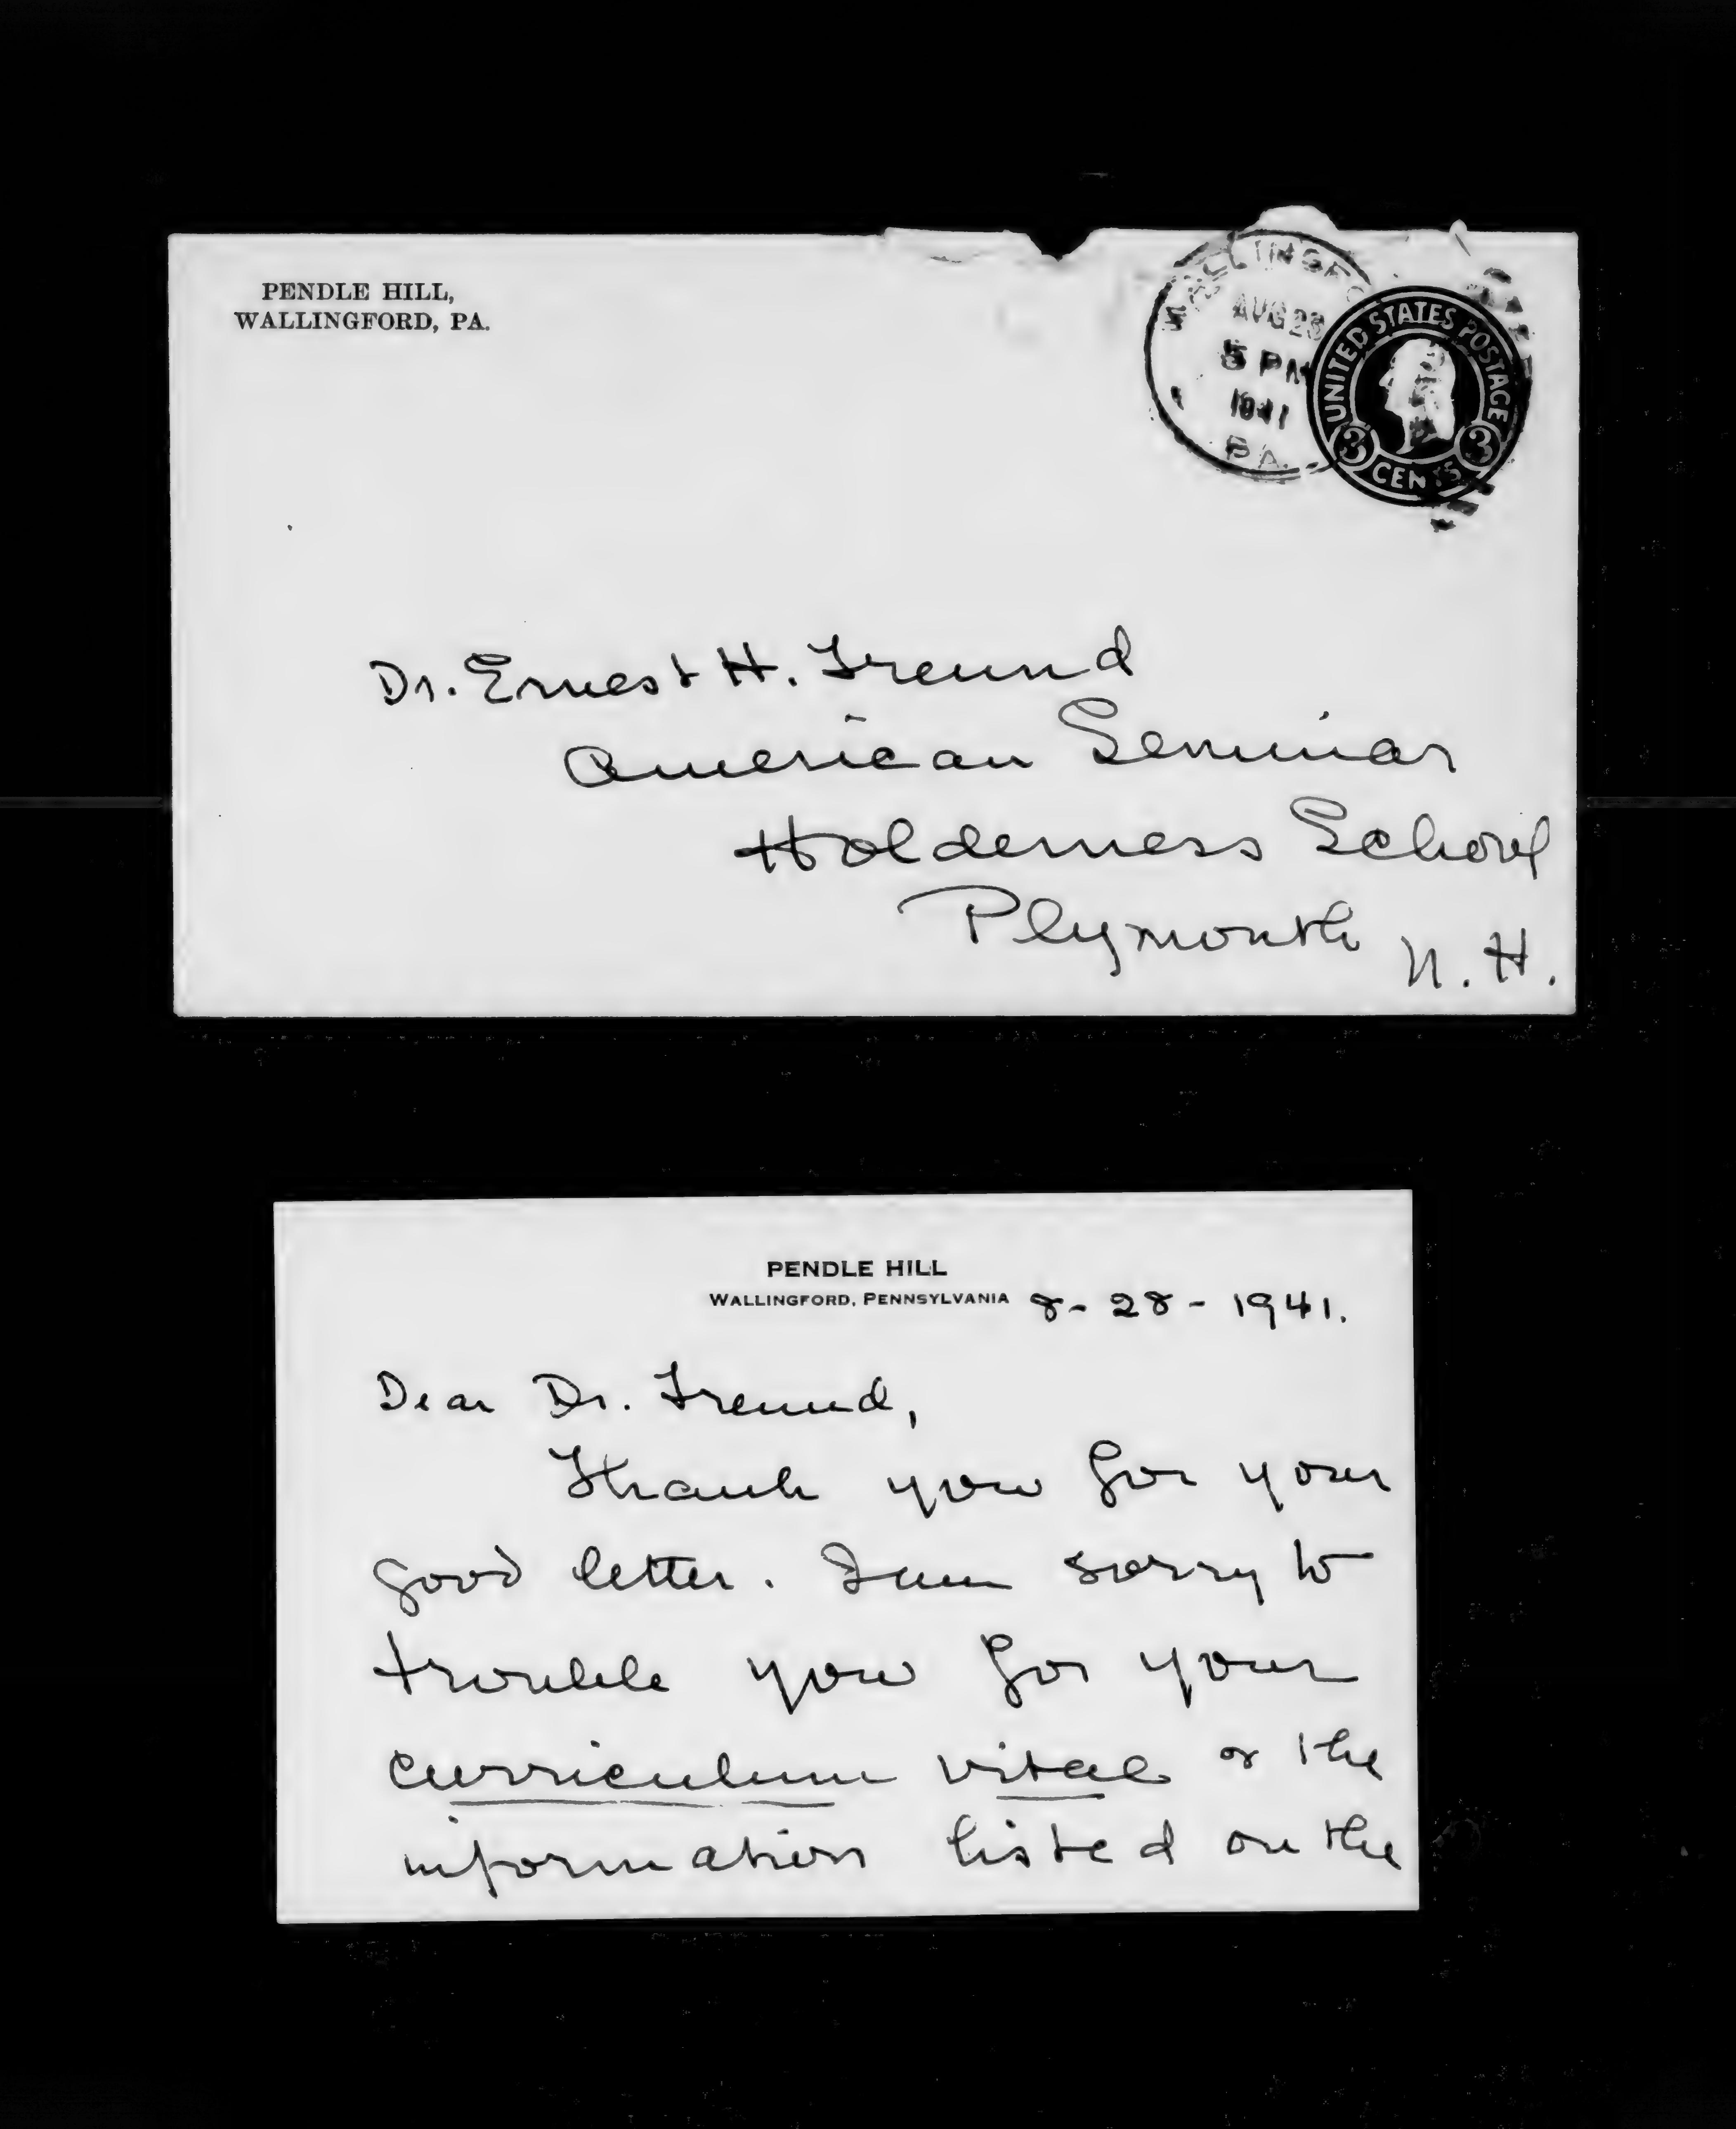 PENDLE HILL,
WALLINGFORD, PA.
WALLINGF
AUG 28
5 PM
1941
PA.
UNITED STATES POSTAGE
3 CENTS 3
Dr. Ernest H. Freund
American Seminar
Holderness School
Plymouth N. H.
PENDLE HILL
WALLINGFORD, PENNSYLVANIA 8-28-1941.
Dear Dr. Freund,
Thank you for your
good letter. I am sorry to
trouble you for your
curriculum vitae or the
information listed on the